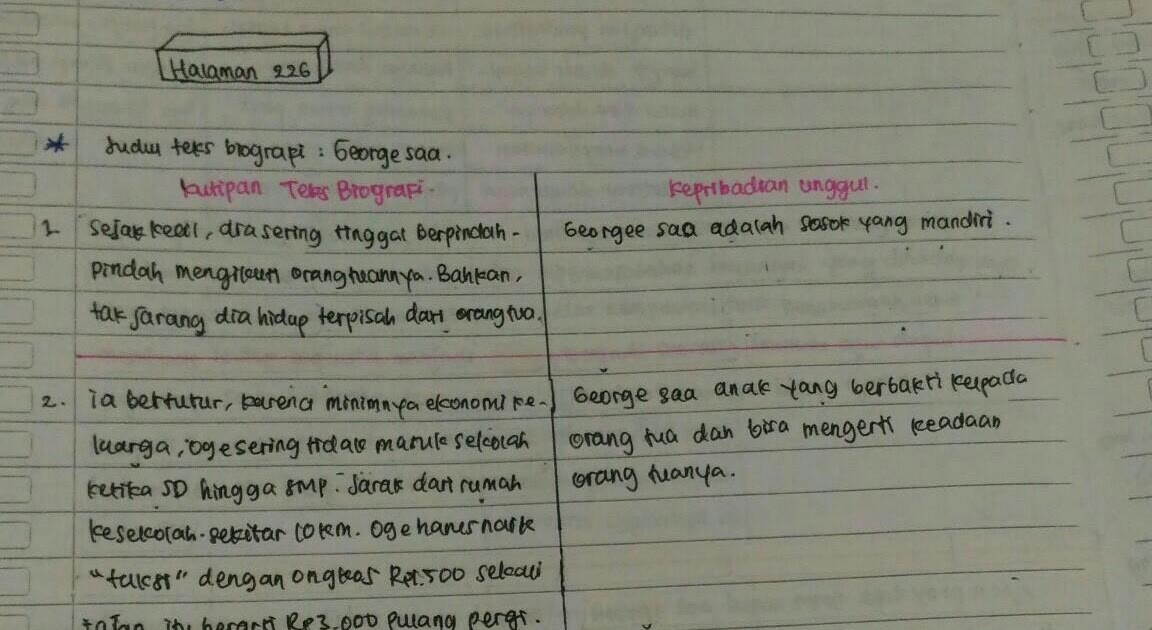 Halaman 226
* Judul teks biograpi : George saa.
Kutipan Teks Biografi. Kepribadian unggul.
1. Sejak kecil, dia sering tinggal berpindah- Georgee saa adalah sosok yang mandiri.
pindah mengikuti orangtuannya. Bahkan,
tak jarang dia hidup terpisah dari orang tua.
2. ia bertutur, karena minimnya ekonomi ke- George saa anak yang berbakti kepada
luarga, oge sering tidak masuk sekolah orang tua dan bisa mengerti keadaan
ketika SD hingga SMP. Jarak dari rumah orang tuanya.
kesekolah sekitar 10 km. Oge harus naik
"taksi" dengan ongkos Rp1.500 sekali
jalan itu berarti Rp3.000 pulang pergi.